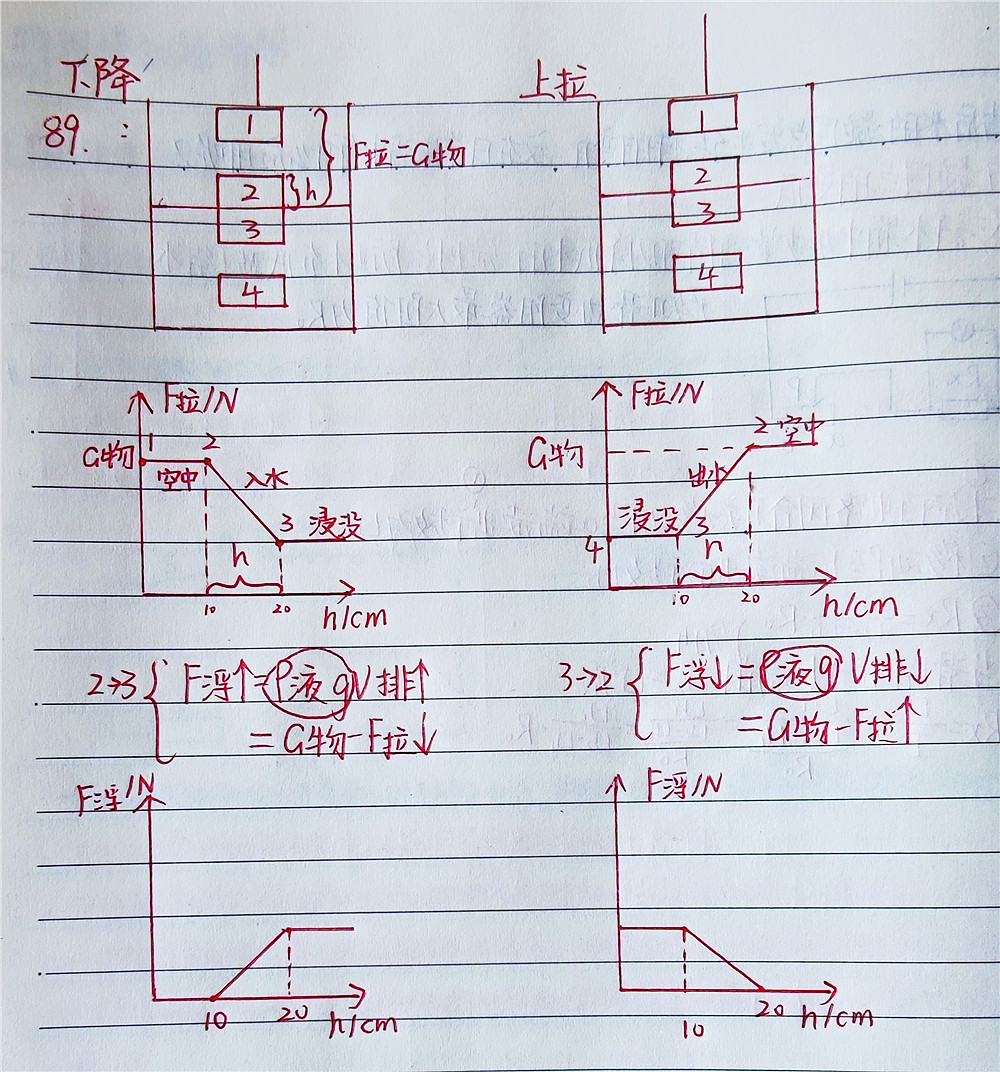 下降
上拉
89. :
1
F拉=G物
2
h
3
4
1
2
3
4
F拉/N
G物
1
2
空中
入水
3 浸没
h
10
20
h/cm
F拉/N
G物
2 空中
出水
浸没
3
4
h
10
20
h/cm
2→3 { F浮↑=ρ液gV排↑
=G物-F拉↓
3→2 { F浮↓=ρ液gV排↓
=G物-F拉↑
F浮/N
10
20
h/cm
F浮/N
10
20
h/cm